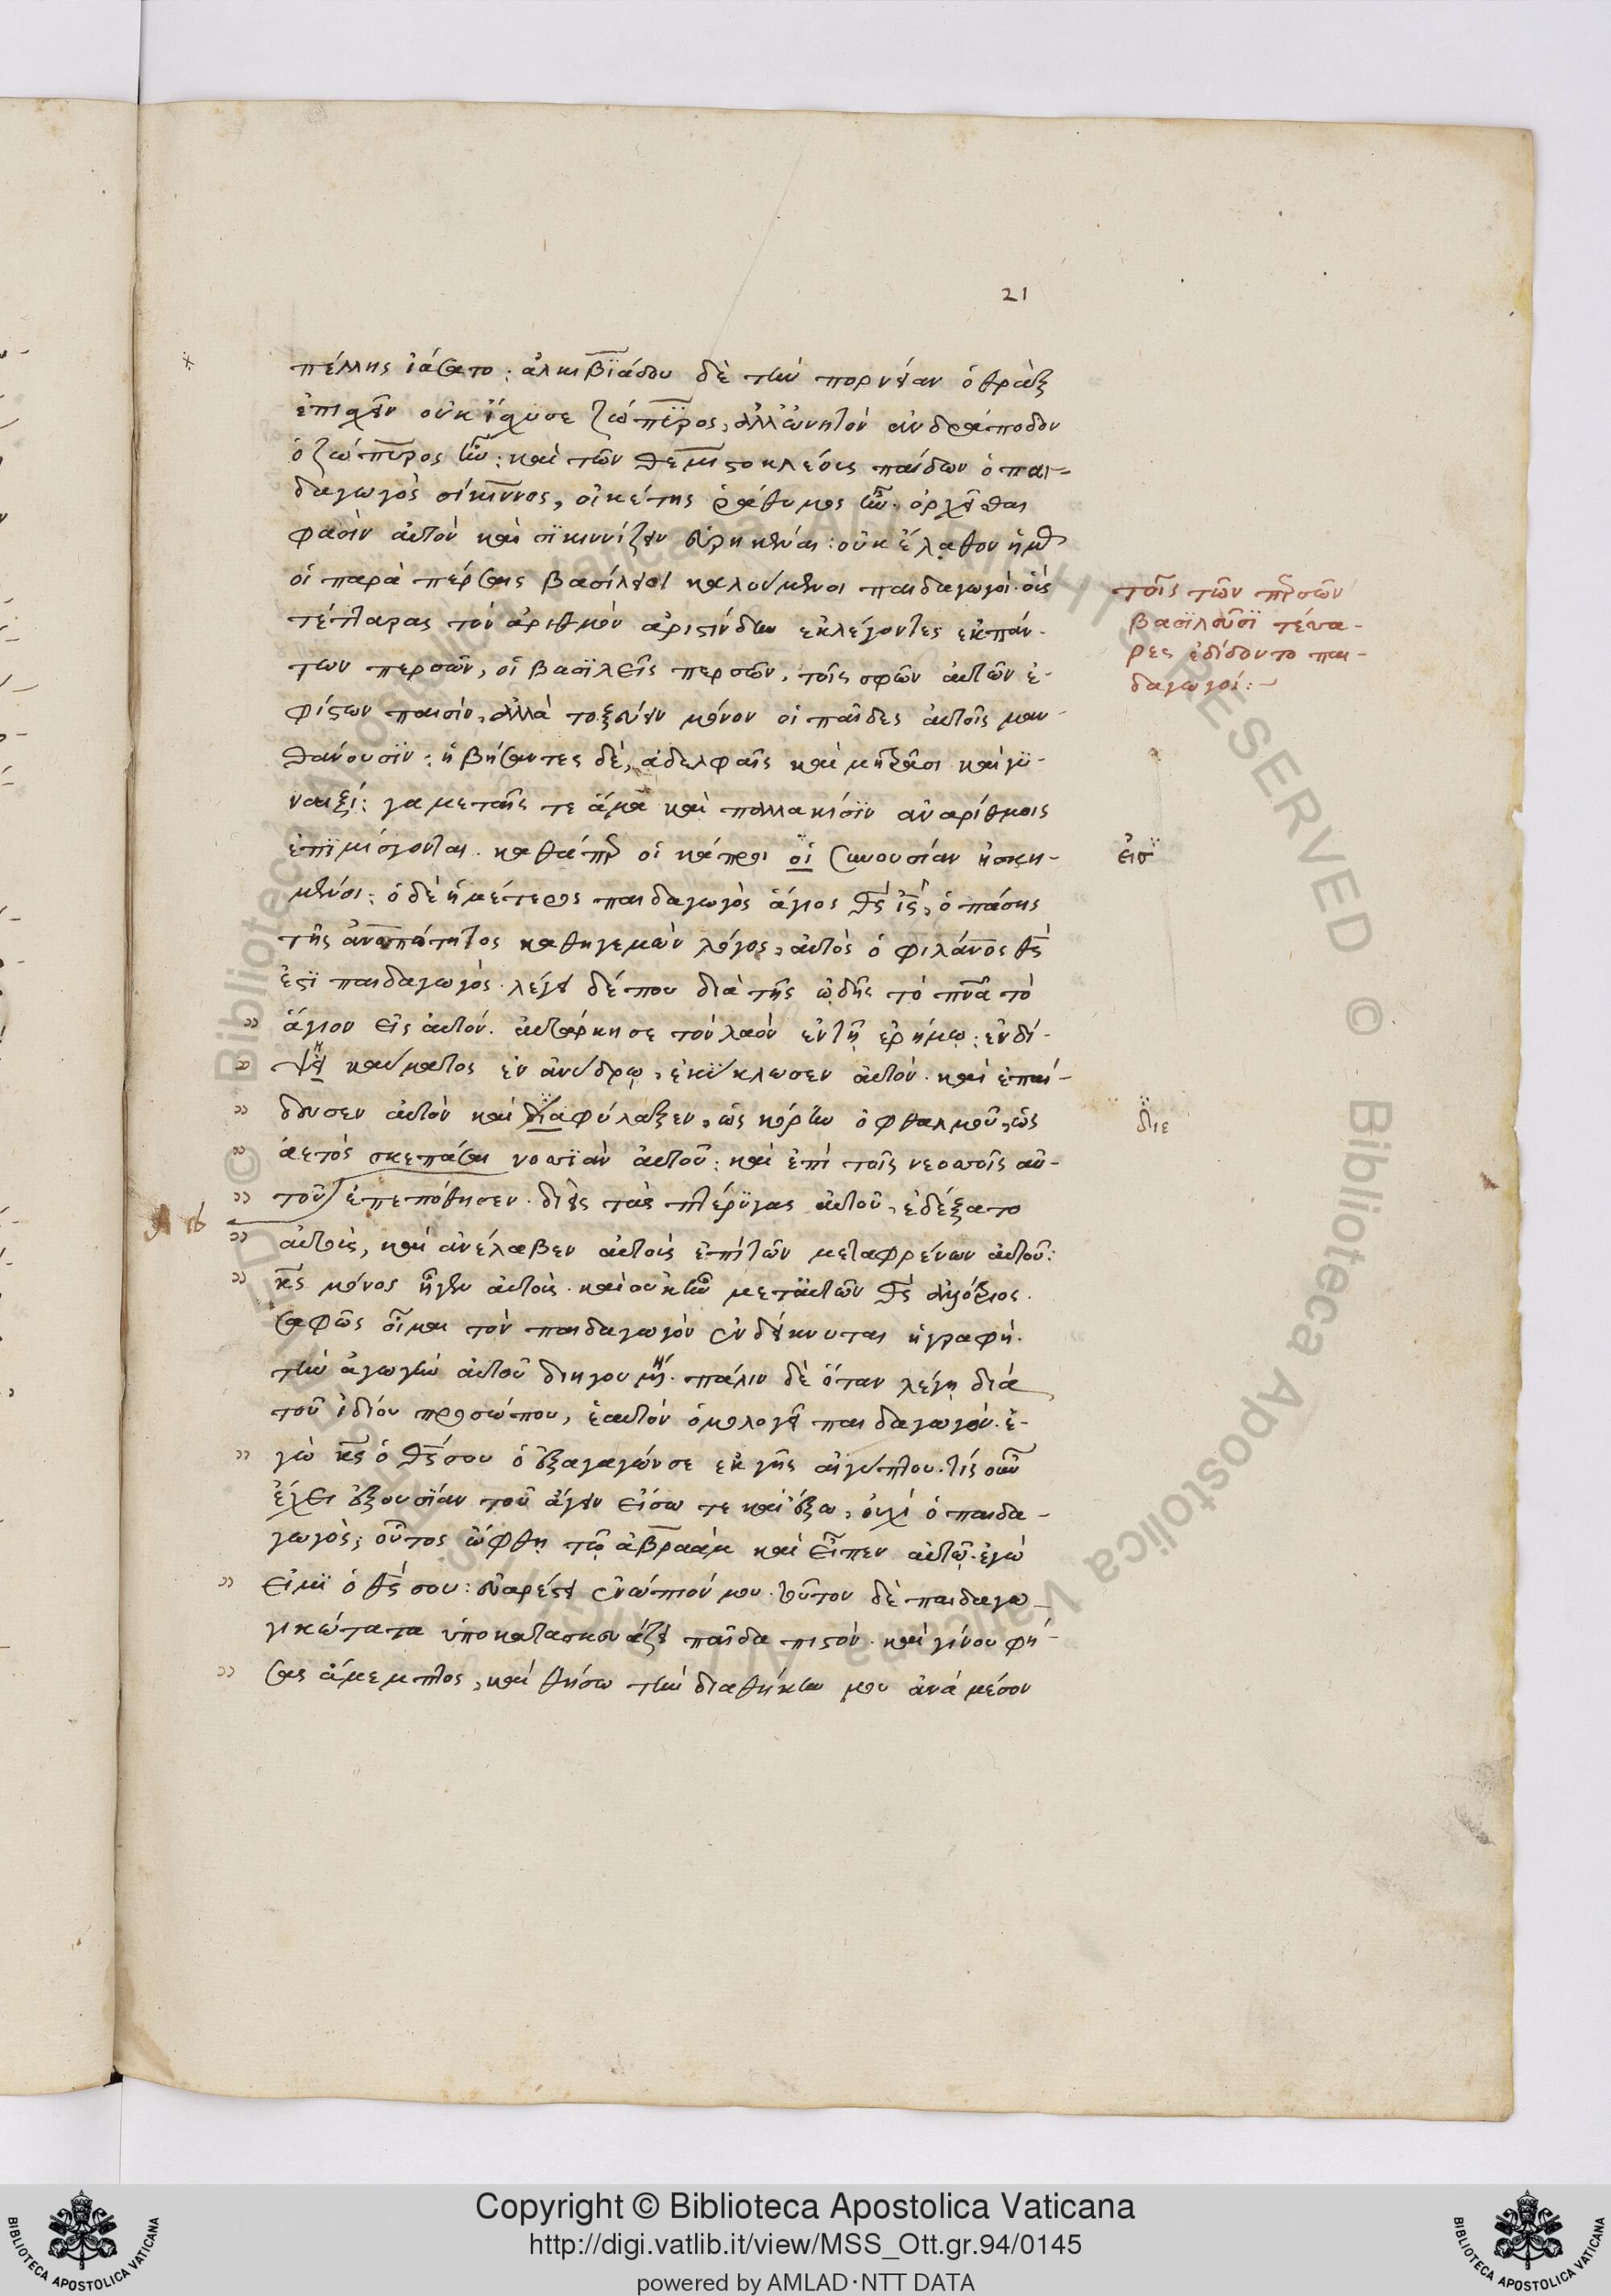 21
πέλλης ἰάσατο: ἀλκιβϊάδου δὲ τὴν πορνείαν ὁ θρὰξ
ἐπισχεῖν οὐκ ἴσχυσε ζώπϋρος, ἀλλ' ὠνητὸν ἀνδράποδον
ὁ ζώπυρος ἦν: καὶ τῶν θεμιστοκλέους παίδων ὁ παι-
δαγωγὸς σίκιννος, οἰκέτης ῥάθυμος ἦν. ὀρχεῖσθαι
φασὶν αὐτὸν καὶ σϊκιννίζειν εὑρηκέναι: οὐκ ἔλαθον ἡμᾶς
οἱ παρὰ πέρσαις βασίλειοι καλούμενοι παιδαγωγοί. οὓς
τέτταρας τὸν ἀριθμὸν ἀριστίνδην ἐκλέγοντες ἐκ πάν-
των περσῶν, οἱ βασϊλεῖς περσῶν, τοῖς σφῶν αὐτῶν ἐ-
φίστων παισὶν, ἀλλὰ τοξεύειν μόνον οἱ παῖδες αὐτοῖς μαν-
θάνουσϊν: ἡβήσαντες δὲ, ἀδελφαῖς καὶ μητράσι καὶ γϋ-
ναιξί: γαμεταῖς τε ἅμα καὶ παλλακίσϊν ἀναρίθμοις
ἐπϊμίσγονται. καθάπερ οἱ κάπροι οἱ συνουσίαν ἠσκη-
μένοι: ὁ δὲ ἡμέτερος παιδαγωγὸς ἅγιος θς ις, ὁ πάσης
τῆς ἀνθρωπότητος καθηγεμὼν λόγος, αὐτὸς ὁ φιλάνος θς
ἐστϊ παιδαγωγός. λέγει δέ που διὰ τῆς ᾠδῆς τὸ πνα τὸ
" ἅγιον εἰς αὐτόν. αὐτάρκησε τὸν λαὸν ἐν τῇ ἐρήμῳ: ἐν δί-
" ψει καύματος ἐν ἀνύδρῳ, ἐκϋκλωσεν αὐτὸν. καὶ ἐπαί-
" δευσεν αὐτὸν καὶ διαφύλαξεν, ὡς κόρην ὀφθαλμοῦ, ὡς
" ἀετὸς σκεπάσαι νοσϊὰν αὐτοῦ: καὶ ἐπὶ τοῖς νεοσσοῖς αὐ-
" τοῦ ἐπεπόθησεν. διεὶς τὰς πτέρϋγας αὐτοῦ, ἐδέξατο
" αὐτοὺς, καὶ ἀνέλαβεν αὐτοὺς ἐπὶ τῶν μεταφρένων αὐτοῦ:
" κς μόνος ἦγεν αὐτοὺς. καὶ οὐκ ἦν μετ' αὐτῶν θς ἀλλότριος.
σαφῶς οἶμαι τὸν παιδαγωγὸν ἐνδείκνυται ἡ γραφή.
τὴν ἀγωγὴν αὐτοῦ διηγουμένη. πάλιν δὲ ὅταν λέγῃ διὰ
τοῦ ἰδίου προσώπου, ἑαυτὸν ὁμολογεῖ παιδαγωγόν. ἐ-
" γὼ κς ὁ θς σου ὁ ἐξαγαγών σε ἐκ γῆς αἰγύπτου. τίς οὖν
ἔχει ἐξουσϊαν τοῦ ἄγειν εἴσω τε καὶ ἔξω, οὐχὶ ὁ παιδα-
γωγός; οὗτος ὤφθη τῷ ἀβραὰμ καὶ εἶπεν αὐτῷ. ἐγώ
" εἰμϊ ὁ θς σου: εὐαρέστει ἐνώπιόν μου. τοῦτον δὲ παιδαγω-
γικώτατα ὑποκατασκευάζει παῖδα πιστόν. καὶ γίνου φή-
" σας ἄμεμπτος, καὶ θήσω τὴν διαθήκην μου ἀνὰ μέσον
τοῖς τῶν περσῶν
βασϊλεῦσϊ τέσσα-
ρες ἐδίδοντο παι-
δαγωγοί:-
εἰσ
διε